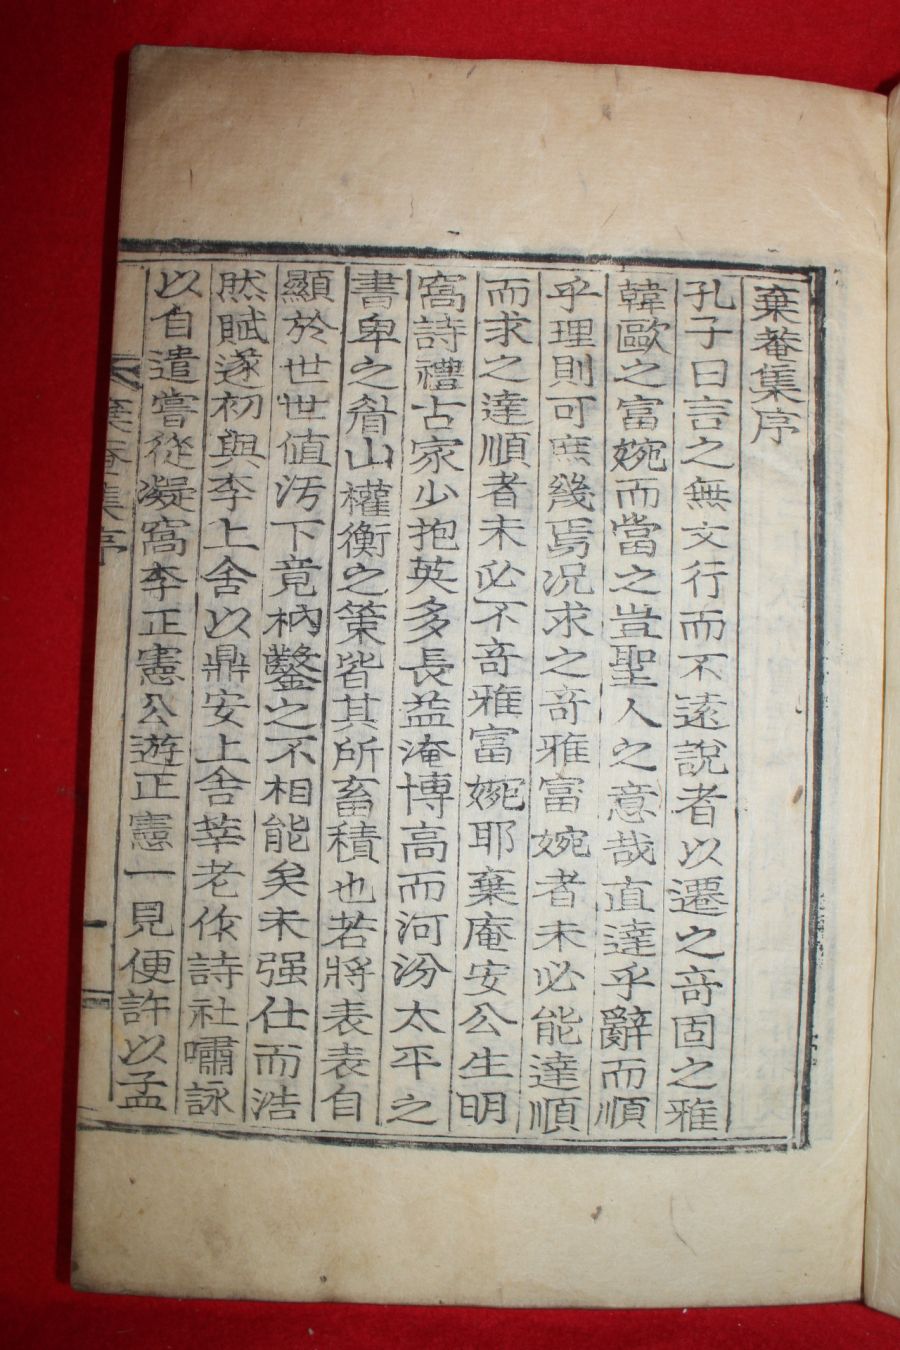 棄菴集序
孔子曰言之無文行而不遠說者以遷之奇固之雅
韓歐之富婉而當之豈聖人之意哉直達乎辭而順
乎理則可庶幾焉况求之奇雅富婉者未必能達順
而求之達順者未必不奇雅富婉耶棄庵安公生明
窩詩禮古家少抱英多長益淹博高而河汾太平之
書卑之眉山權衡之策皆其所畜積也若將表表自
顯於世世値汚下竟枘鑿之不相能矣未强仕而浩
然賦遂初與李上舍以鼎安上舍莘老作詩社嘯詠
以自遣嘗從凝窩李正憲公遊正憲一見便許以孟
棄菴集序